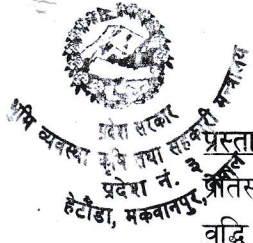 प्रदेश सरकार
भूमि व्यवस्था कृषि तथा सहकारी मन्त्रालय
प्रदेश नं. ३
हेटौंडा, मकवानपुर, नेपाल
प्रस्ता
प्रतिस
वृद्धि